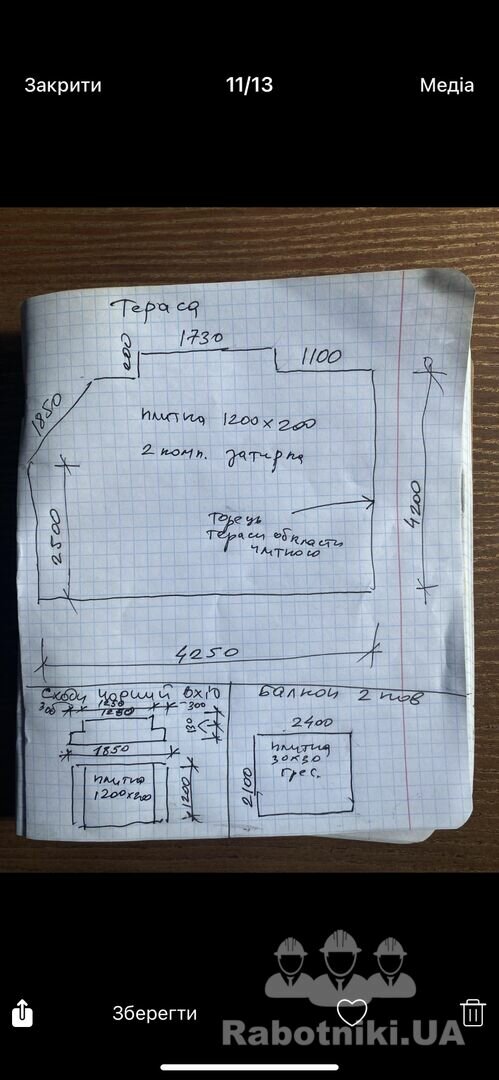 Закрити
11/13
Медіа
Тераса
1730
200
1100
1850
плитка 1200х200
2 комп. затирка
4200
торець
тераси обкласти
плиткою
2500
4250
Сходи чорний вхід
300
1250
1250
300
130
1850
плитка
1200х200
1200
Балкон 2 пов
2400
плитка
30х30
грес.
2100
Зберегти
Rabotniki.UA